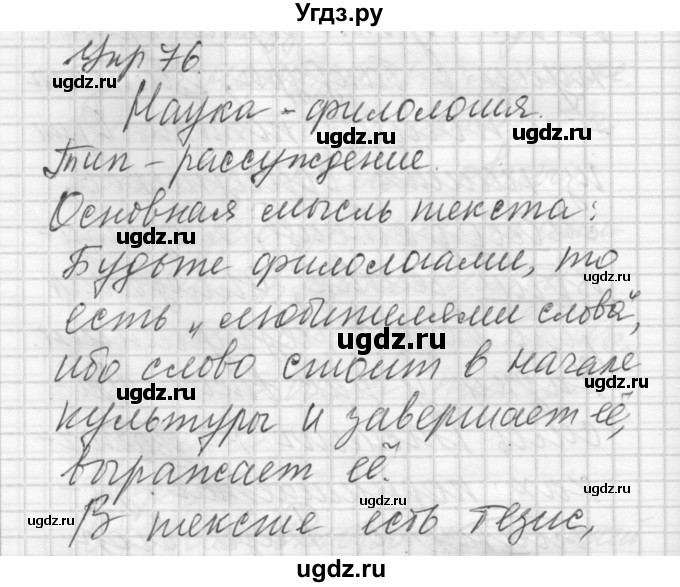 Угдз.ру
Упр 76.
ugdz.ru
Наука - филология.
ugdz.ru ugdz.ru
Тип - рассуждение.
ugdz.ru
Основная мысль текста:
ugdz.ru
Будьте филологами, то
ugdz.ru
есть „любителями слова",
ugdz.ru
ибо слово стоит в начале
ugdz.ru ugdz.ru
культуры и завершает её,
выражает её.
ugdz.ru ugdz.ru
В тексте есть тезис,
ugdz.ru ugdz.ru
ugdz.ru